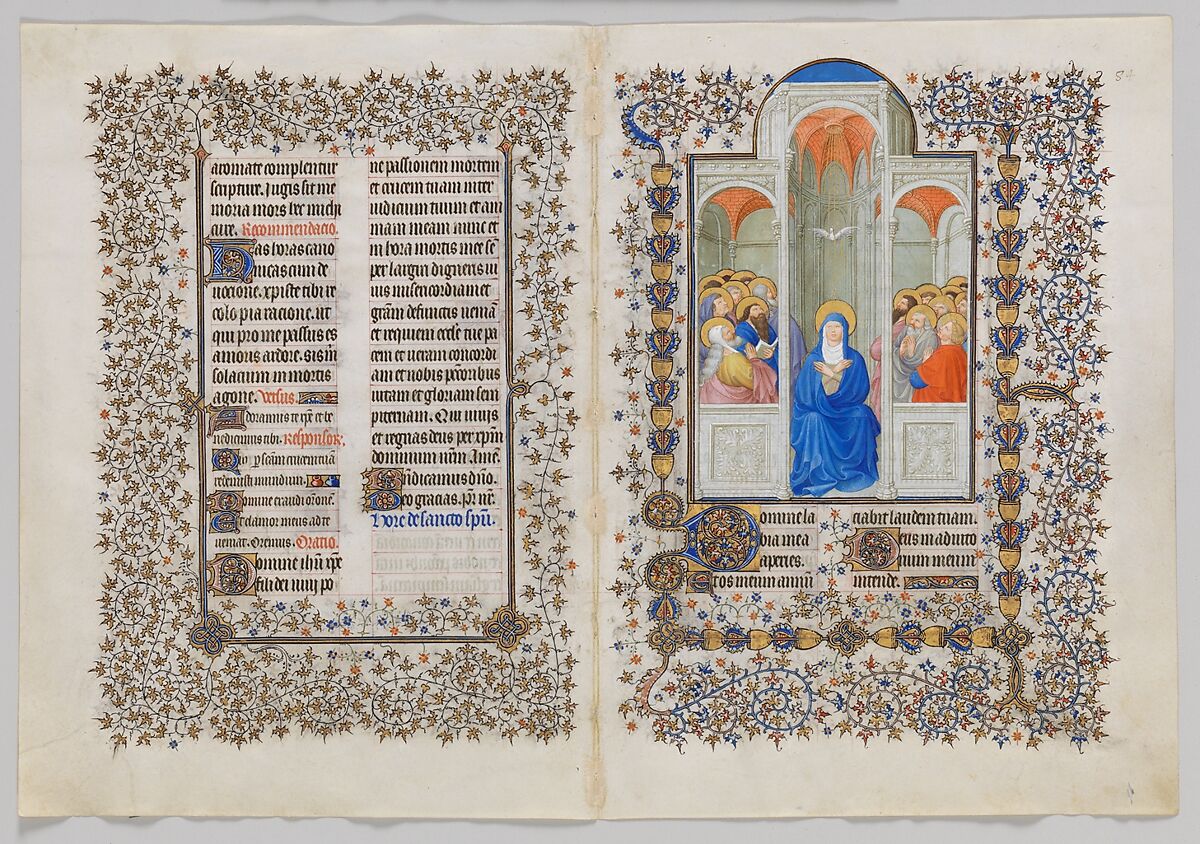 aromate complentur
scripture. Jugis sit me
moria mors hec michi
cure. Recommendacio.
Has horas cano
nicas cum de
uocione. xpiste tibi re
colo pia racione. ut
qui pro me passus es
amoris ardore. sis in
solacium in mortis
agone. Versus.
Adoramus te xp̄e et be
nedicimus tibi. Responsor.
Qui p̱ scām crucem tuā
redemisti mundum.
Domine exaudi or̄onē.
Et clamor meus ad te
ueniat. Oremus. Oratio.
Domine ihū xp̄e
fili dei uiui po
ne passionem mortem
et crucem tuam inter
iudicium tuum et ani
mam meam nunc et
in hora mortis mee se
per largiri digneris ui
uis misericordiam et
grām defunctis ueniā
et requiem eccl̄e tue pa
cem et ueram concordi
am et nobis pc̄oribus
uitam et gloriam sem
piternam. Qui uiuis
et regnas deus per xp̄m
dominum nr̄m. Amē.
Benedicamus dn̄o.
Deo gracias. Pr̄ nr̄.
Hore de sancto spū.
84
Domine la
bia mea
aperies.
Et os meum annū
ciabit laudem tuam.
Deus in adiuto
rium meum
intende.